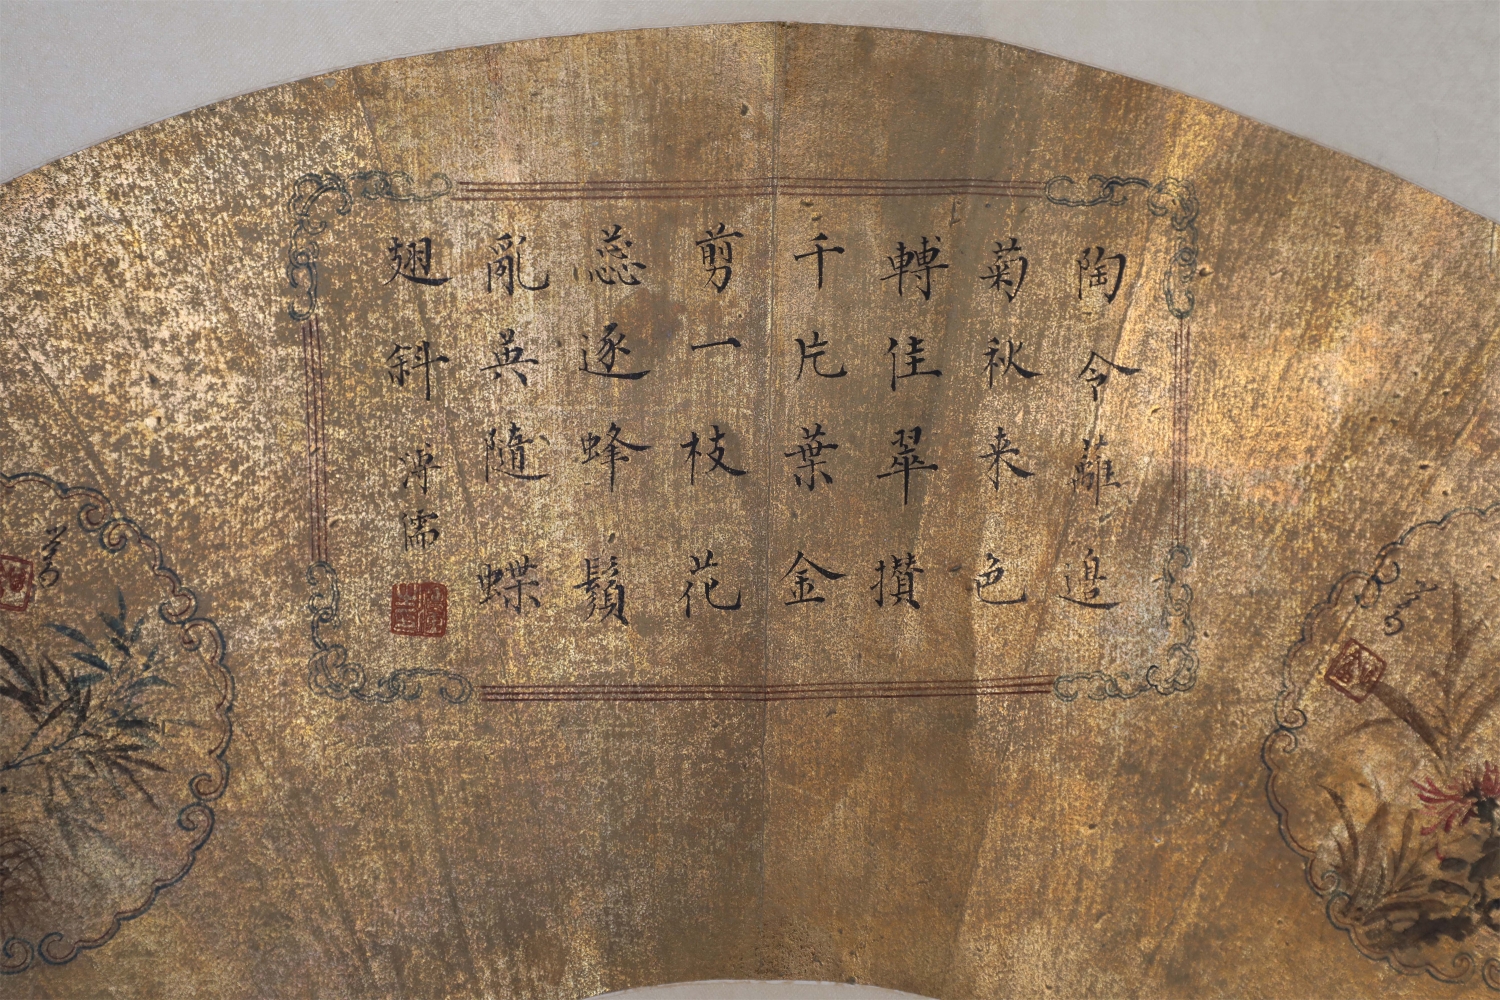 陶令蘺邉
菊秋来色
轉佳翠攢
千片葉金
剪一枝花
蕊逐蜂鬚
亂英隨蝶
翅斜
溥儒